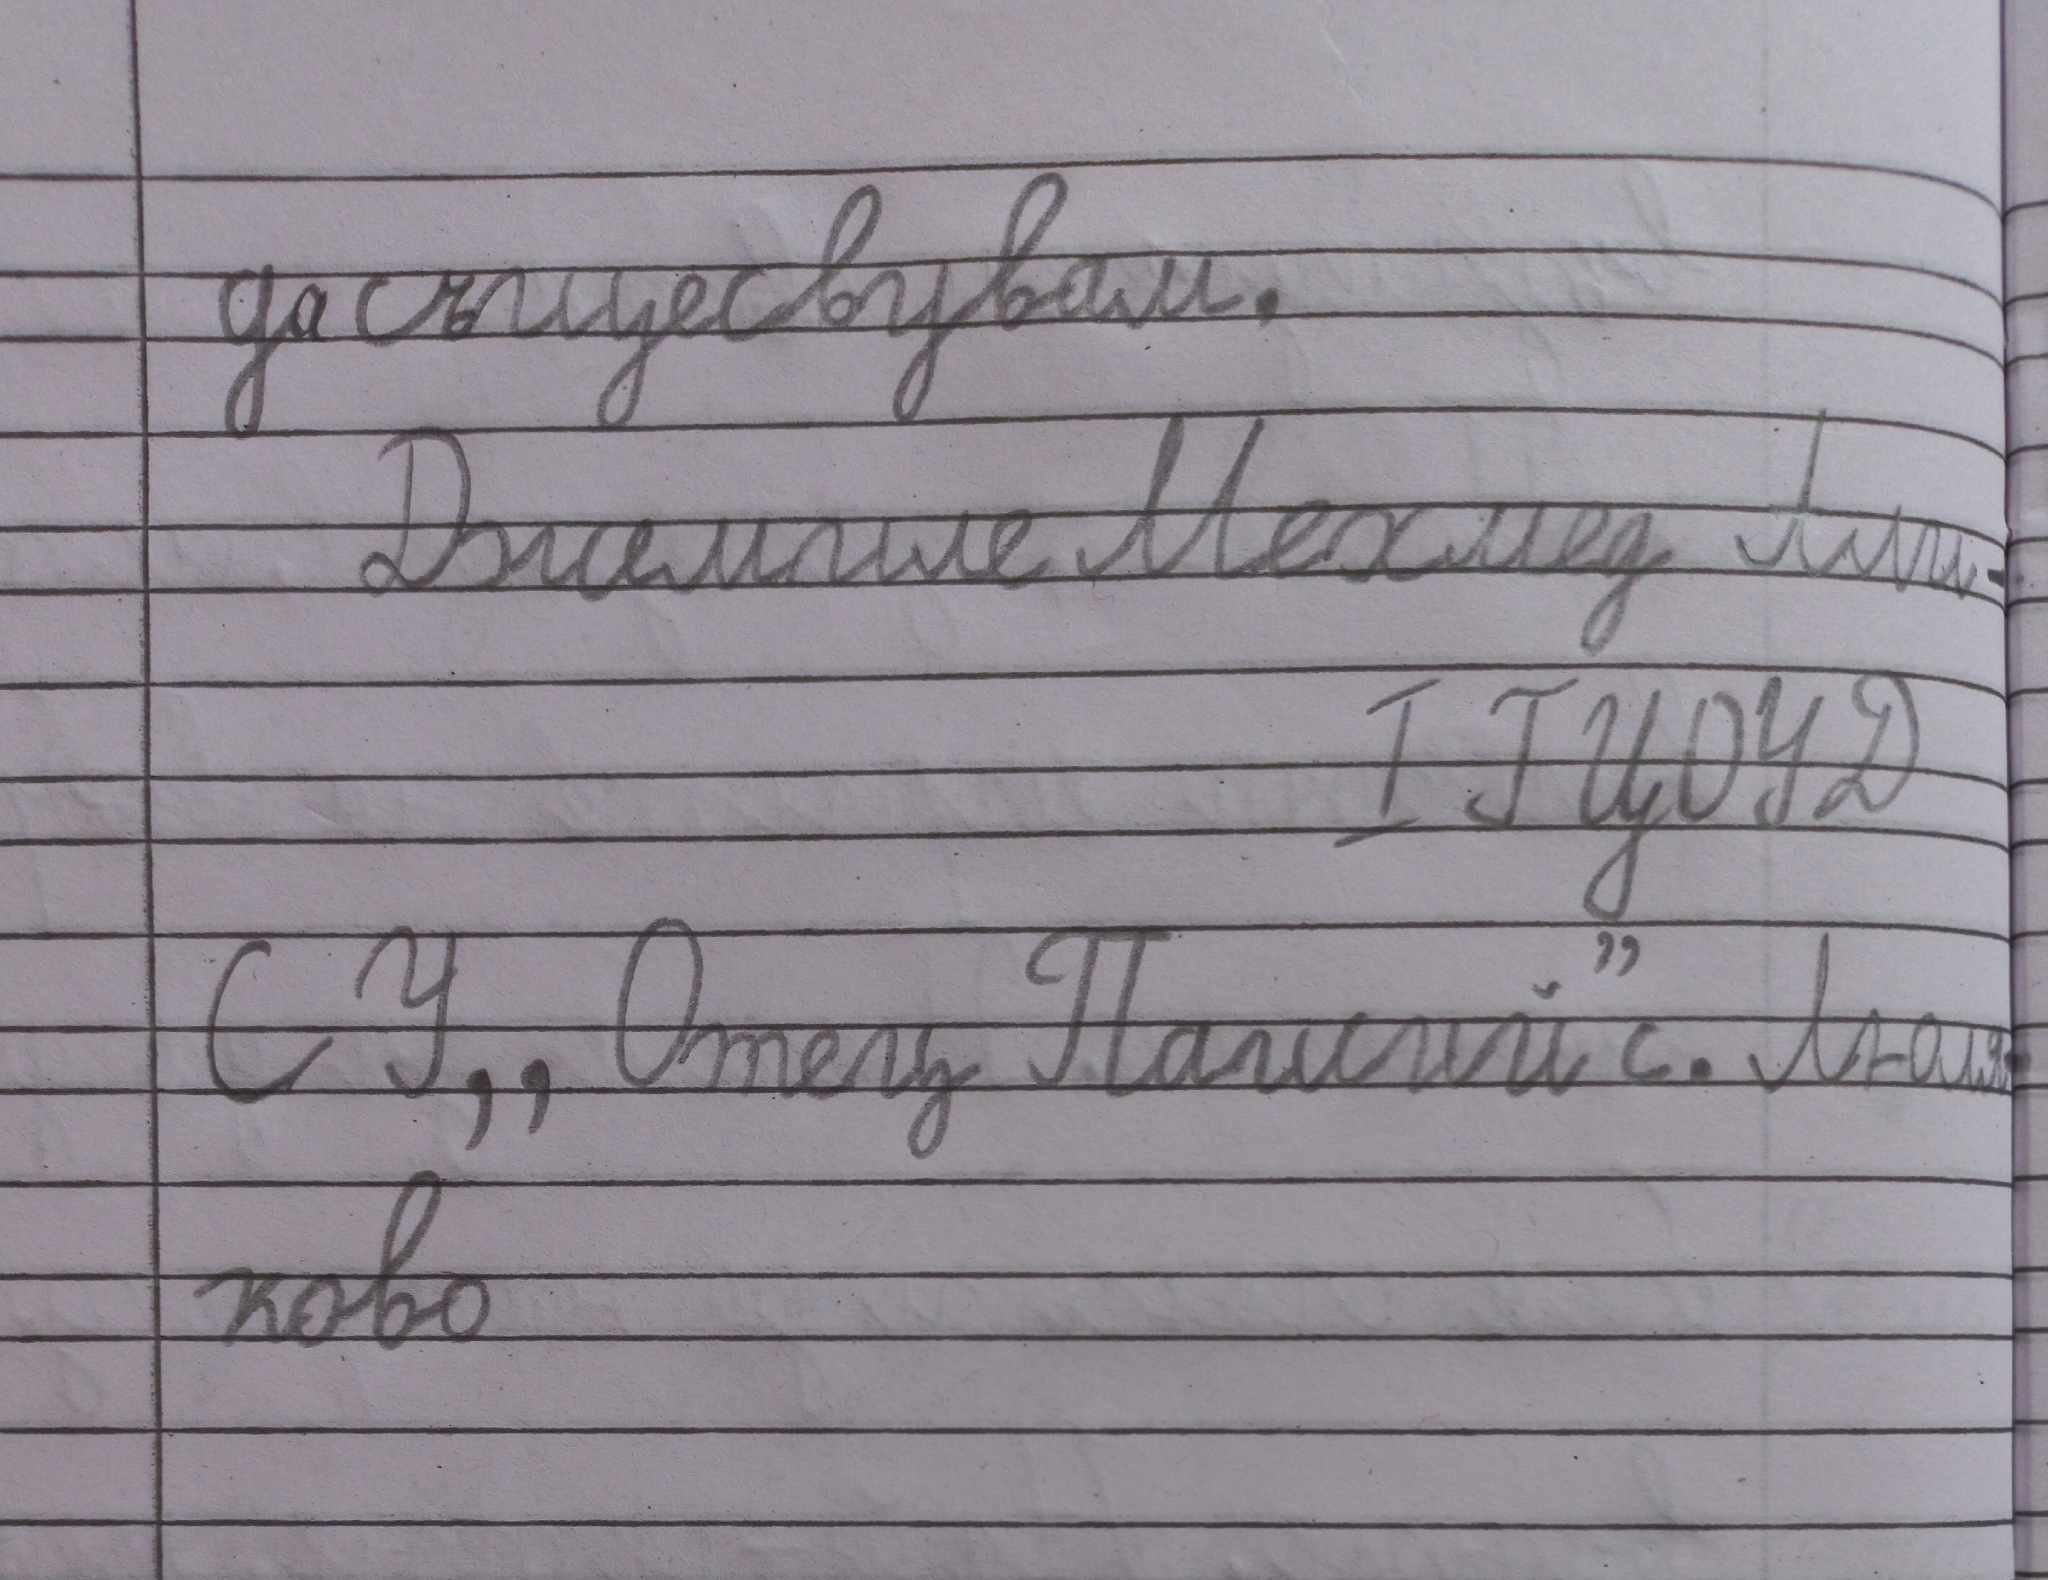 да същесвувам.
Джемиле Мехмед Али-
I ГЦОУД
СУ,, Отец Паисий" с. Ляля-
ково